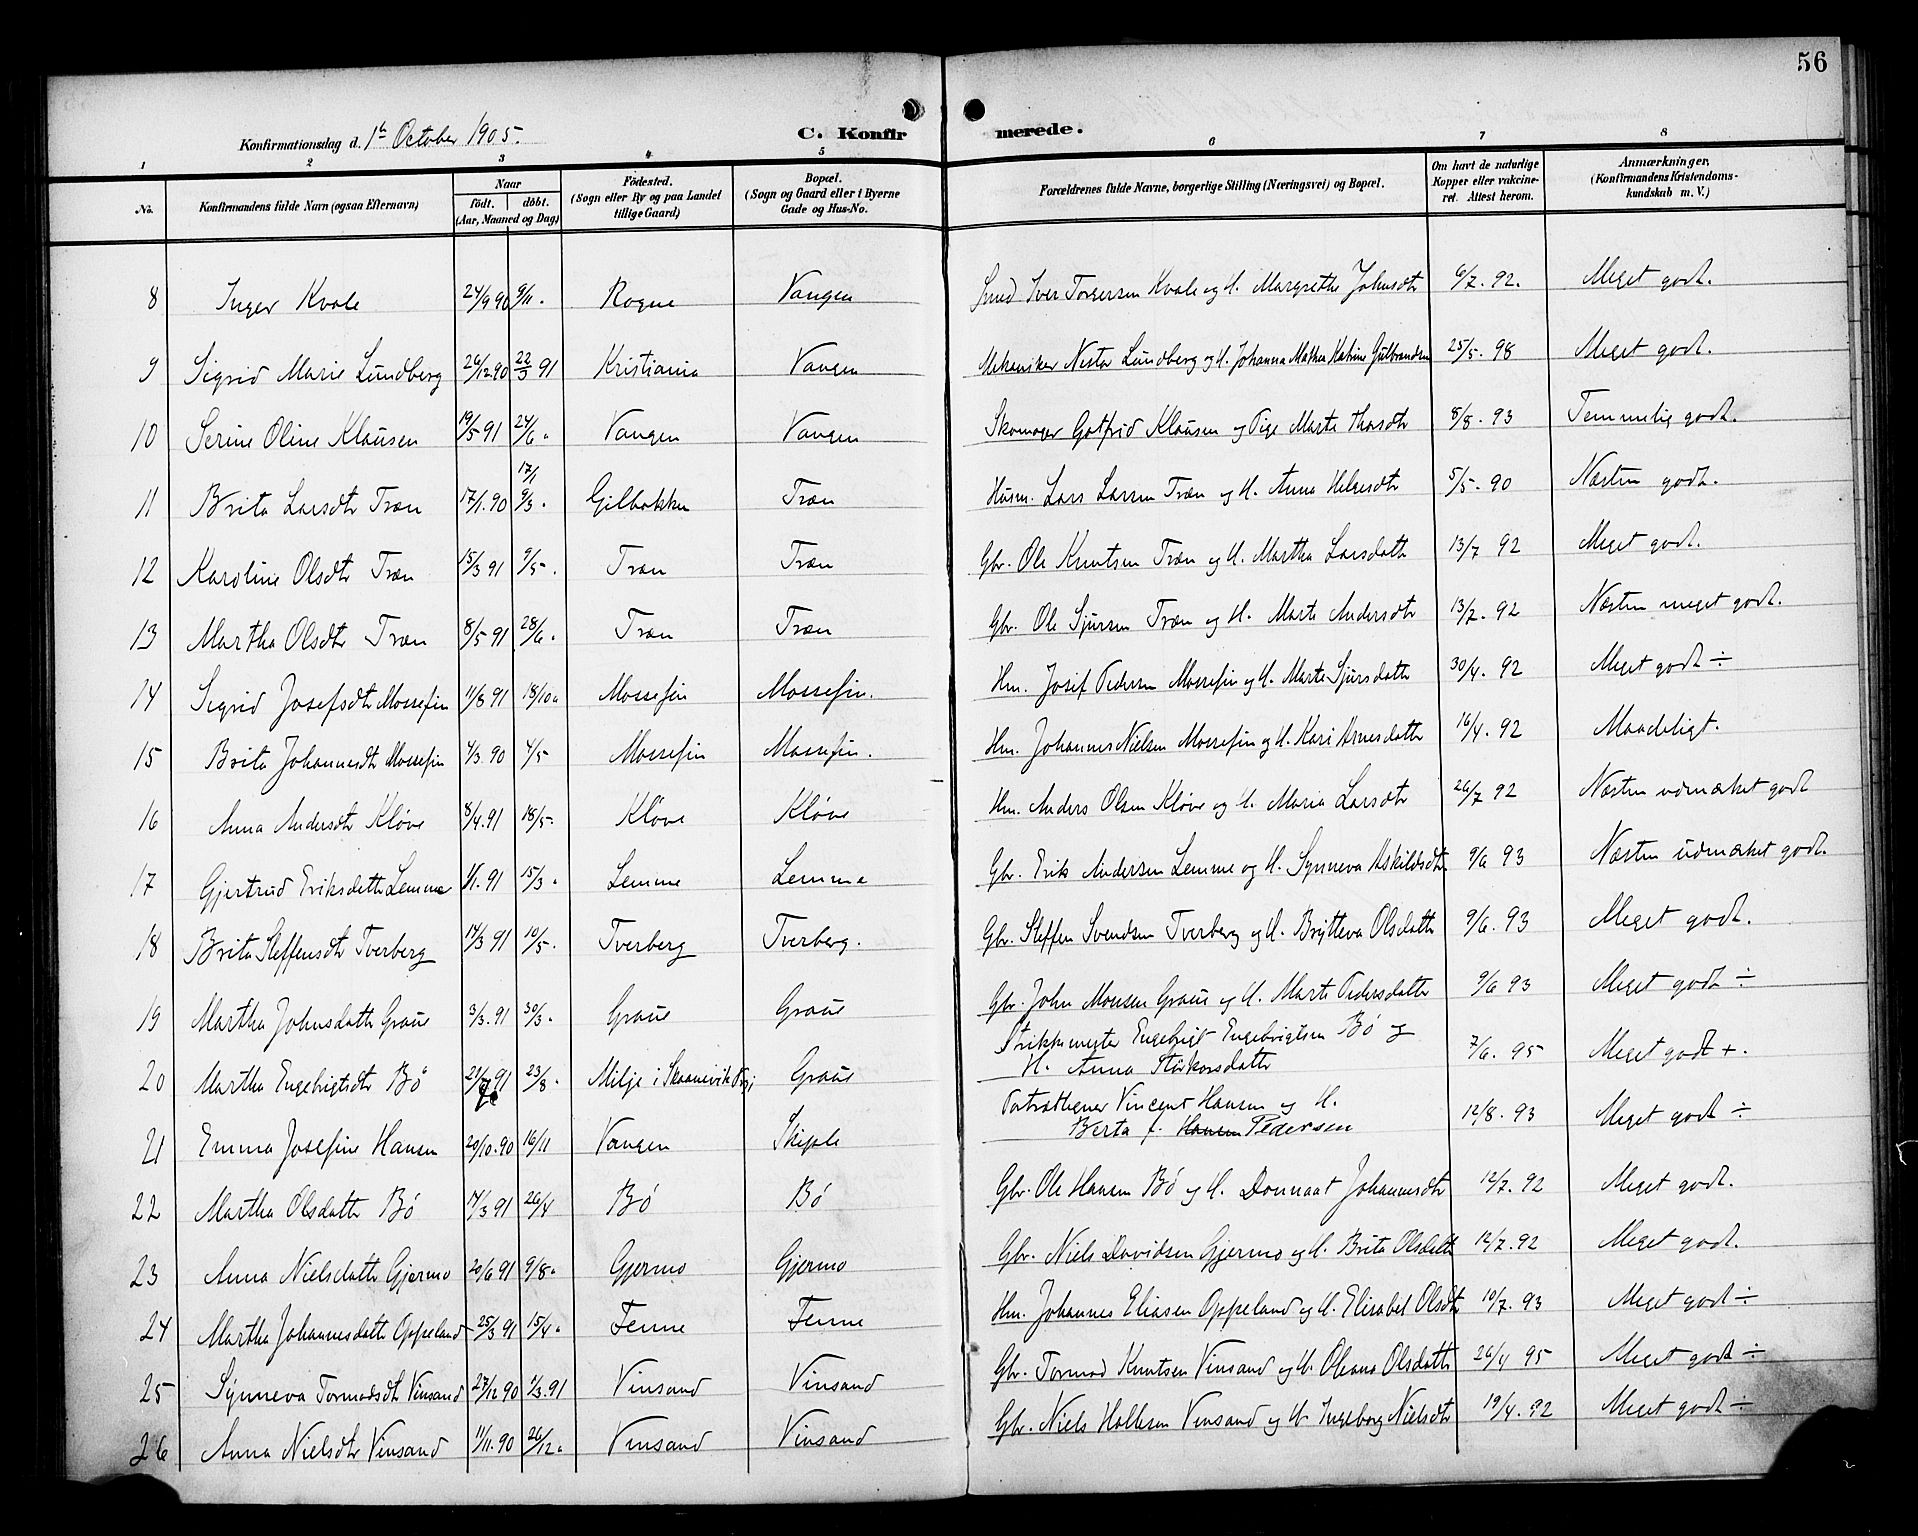 56
Konfirmationsdag d. 1ste October 1905.
C. Konfirmerede.
1 2 3 4 5 6 7 8
No. Konfirmandens fulde Navn (ogsaa Efternavn) Naar født. døbt. (Aar, Maaned og Dag) Fødested. (Sogn eller By og paa Landet tillige Gaard) Bopæl. (Sogn og Gaard eller i Byerne Gade og Hus-No. Forældrenes fulde Navne, borgerlige Stilling (Næringsvei) og Bopæl. Om havt de naturlige Kopper eller vakcineret. Attest herom. Anmærkninger, (Konfirmandens Kristendomskundskab m. V.)
8 Inger Kvale 24/9 90 9/11. Rogne Vangen Smed Iver Torgersen Kvale og H. Margrethe Johnsdtr 6/7. 92. Meget godt.
9 Sigrid Marie Lundberg 26/12 90 22/3 91 Kristiania Vangen Mekaniker Nestor Lundberg og H. Johanna Mathea Katrine Gulbrandsen 25/5. 98 Meget godt.
10 Serine Oline Klausen 19/5 91 24/6 „ Vangen Vangen Skomager Gotfrid Klausen og Pige Marta Thosdtr 8/8. 93 Temmelig godt.
11 Brita Larsdtr Træn 17/1. 90 17/1 9/3 „ Gilbakken Træn Husm. Lars Larsen Træn og H. Anna Helgesdtr 5/5. 90 Næsten godt.
12 Karoline Olsdtr Træn 15/3 91 9/5. Træn Træn Gbr. Ole Knutsen Træn og H. Martha Larsdatter 13/7 92 Meget godt.
13 Martha Olsdtr Træn 8/5 91 28/6 „ Træn Træn Gbr. Ole Sjursen Træn og H. Marta Andersdtr 13/7. 92 Næsten meget godt.
14 Sigrid Josefsdtr Mossefin 11/8 91 18/10 „ Mossefin Mossefin. Hm. Josef Pedersen Mossefin og H. Marta Sjursdatter 30/4. 92 Meget godt ÷
15 Brita Johannesdtr Mossefin 4/3 90 4/5 Mossefin Mossefin. Hm. Johannes Nielsen Mossefin og H. Kari Arnesdatter 16/4. 92 Maadeligt.
16 Anna Andersdtr Kløve 8/4. 91 18/5. Kløve Kløve Hm. Anders Olsen Kløve og H. Maria Larsdtr 26/7 92 Næsten udmærket godt
17 Gjertrud Eriksdatter Lemme 1/1. 91 15/3 „ Lemme Lemme Gbr. Erik Andersen Lemme og H. Synneva Askildsdtr 9/6 93 Næsten udmærket godt.
18 Brita Steffensdtr Tverberg 14/3 91 10/5. Tverberg Tverberg. Gbr. Steffen Svendsen Tverberg og H. Brytteva Olsdatter 9/6. 93 Meget godt.
19 Martha Johnsdatter Graue 3/3. 91 30/3 „ Graue Graue Gbr. John Monsen Graue og H. Marta Pedersdatter 9/6 93 Meget godt ÷
20 Martha Engebrigtsdtr Bø 21/7 91 23/8. Milje i Skaanevik Prgj Graue Strikkemester Engebrigt Engebrigtsen Bø og
H. Anna Størkorsdatter 7/6. 95 Meget godt +.
21 Emma Josefine Hansen 20/10. 90 16/11 Vangen Skiple Portrætegner Vincent Hansen og H.
Berta f. Hansen Pedersen 12/8. 93 Meget godt ÷
22 Martha Olsdatter Bø 14/3 91 26/4 Bø Bø Gbr. Ole Hansen Bø og H. Donnaat Johannesdtr 12/7. 92 Meget godt.
23 Anna Nielsdatter Gjermo 20/6 91 9/8 „ Gjermo Gjermo Gbr. Niels Davidsen Gjermo og H. Brita Olsdatter 12/7. 92 Meget godt.
24 Martha Johannesdatter Oppeland 25/3 91 15/4 „ Fenne Fenne Hm. Johannes Eliasen Oppeland og H. Elisabet Olsdtr 10/7. 93 Meget godt ÷
25 Synneva Tormodsdtr Vinsand 27/12 90 1/3. 91 Vinsand Vinsand Gbr. Tormod Knutsen Vinsand og H. Oleana Olsdatter 26/4 95 Meget godt ÷
26 Anna Nielsdtr Vinsand 11/11. 90 26/12 „ Vinsand Vinsand Gbr. Niels Hallesen Vinsand og H. Ingeborg Nielsdtr 19/4. 92 Meget godt ÷